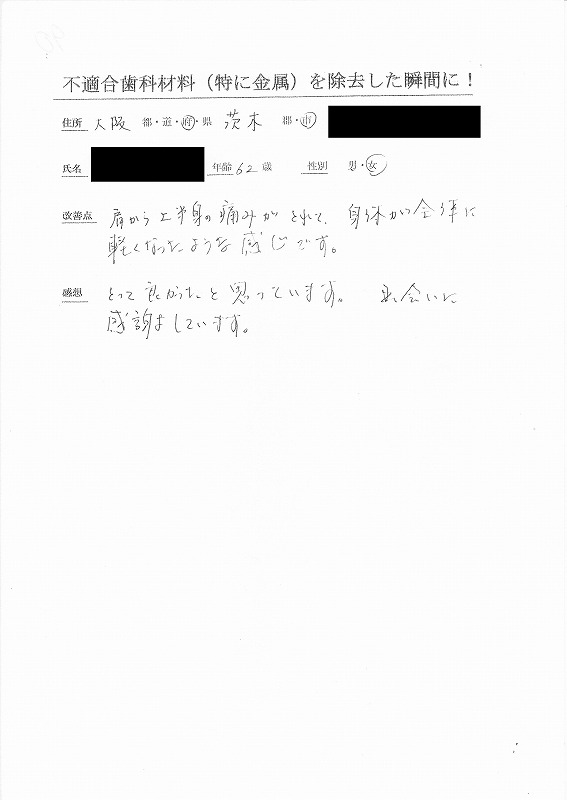 不適合歯科材料（特に金属）を除去した瞬間に！
住所 大阪 都・道・府・県 茨木 郡・市
氏名 年齢 62 歳 性別 男・女
改善点 肩から上半身の痛みがとれて、身体が全体に
軽くなったような感じです。
感想 とって良かったと思っています。 出会いに
感謝しています。